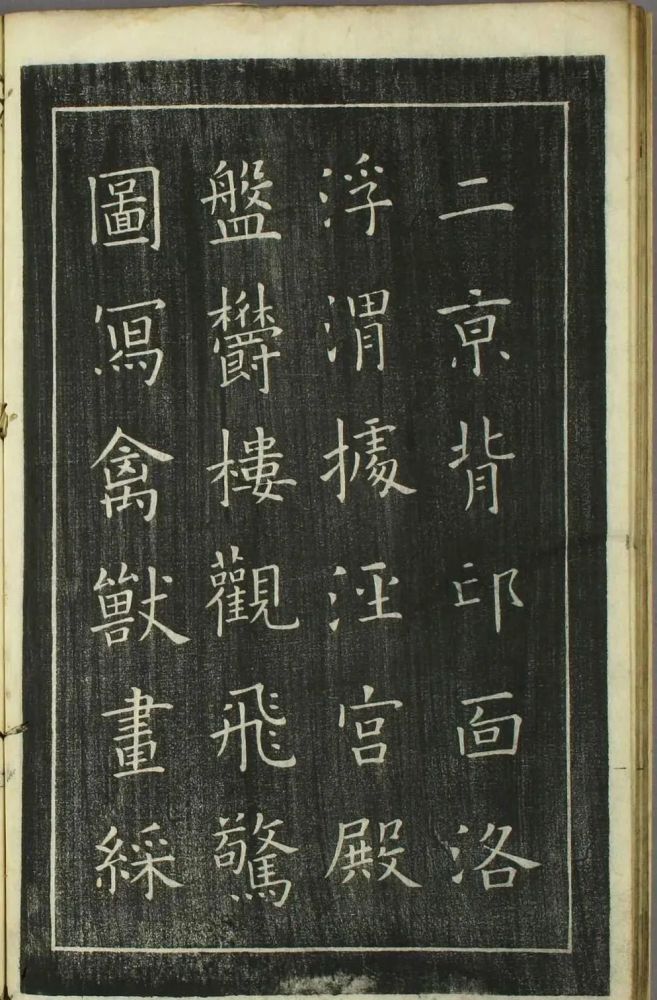 二亰背邙面洛
浮渭據涇宫殿
盤鬱樓觀飛驚
圖冩禽獸畫綵